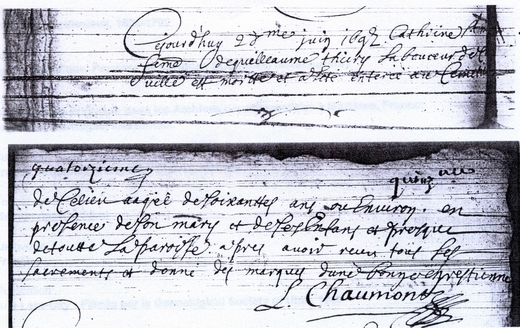 Cejourd'huy 20me juin 1692 Cathrine
feme de guilleaume thiery Laboureur de
est morte et a esté enterée au Cemet
quatorzieme
de Ce lieu aagée de soixantes ans ou Environ . en
presence de son marys et de ses Enfans et presque
de toutte La paroisse apres avoir receu tous ses
sacrements et donne des marques dune bonne chrestienne
L. Chaumont